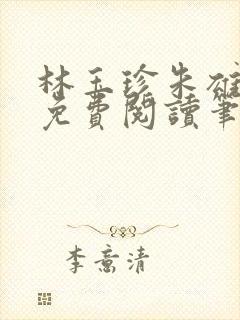 林玉珍朱雄
免費閱讀筆
李意清